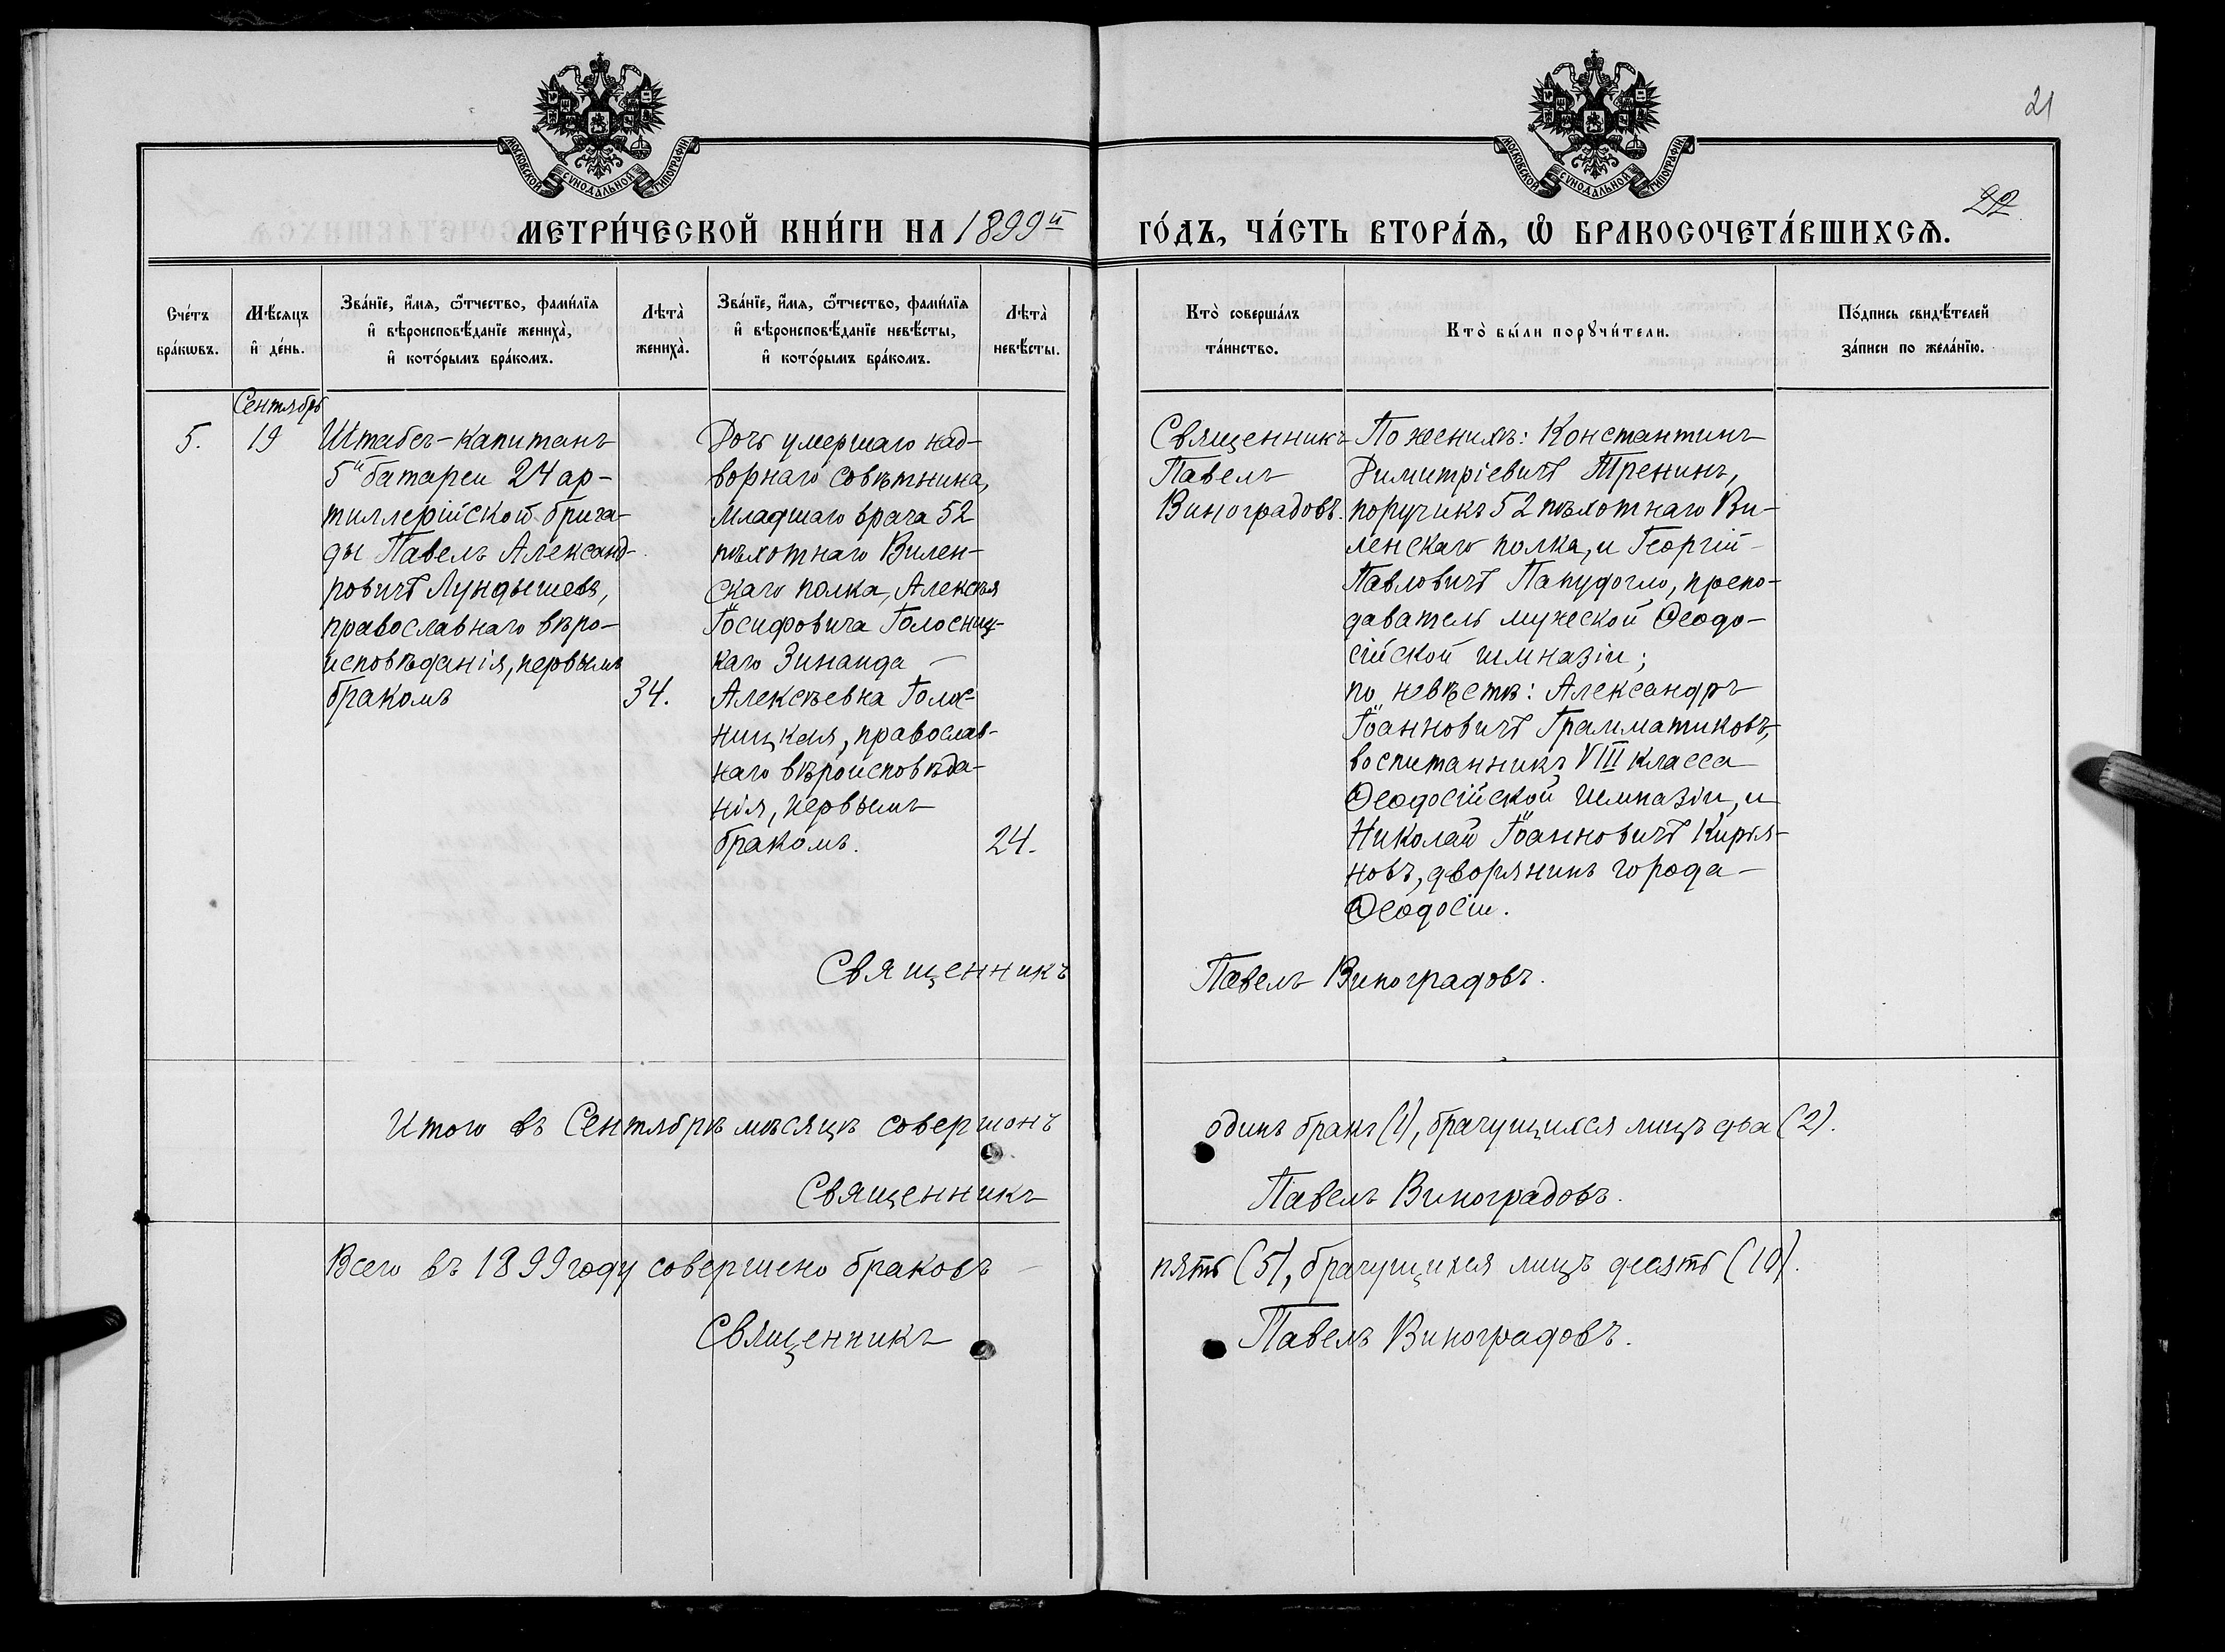 21
22
МОСКОВСКОЙ СѴНОДАЛЬНОЙ ТИПОГРАФІИ
МОСКОВСКОЙ СѴНОДАЛЬНОЙ ТИПОГРАФІИ
МЕТРИ́ЧЕСКОЙ КНИ́ГИ НА 1899й
ГО́ДЪ, ЧА́СТЬ ВТОРА́Ѧ, Ѽ БРАКОСОЧЕТА́ВШИХСѦ.
Сче́тъ
бра́кѡвъ.
Мѣ́сяцъ
и҆ де́нь.
Зва́нїе, и҆́мя, ѻ҆́тчество, фами́лїя
и҆ вѣроисповѣ́данїе жениха̀,
и҆ кото́рымъ бра́комъ.
Лѣта̀
жениха̀.
Зва́нїе, и҆́мя, ѻ҆́тчество, фами́лїя
и҆ вѣроисповѣ́данїе невѣ́сты,
и҆ кото́рымъ бра́комъ.
Лѣта̀
невѣ́сты.
Кто̀ соверша́лъ
та́инство.
Кто̀ бы́ли порꙋчи́тели.
По́дпись свидѣ́телей
за́писи по жела́нїю.
5.
Сентябрь
19
Штабсъ-капитанъ
5й батареи 24 ар-
тиллерійской брига-
ды Павелъ Александ-
ровичъ Лундышевъ,
православнаго вѣро-
исповѣданія, первымъ
бракомъ
34.
Дочь умершаго над-
ворнаго совѣтника,
младшаго врача 52
пѣхотнаго Вилен-
скаго полка, Алексѣя
Іосифовича Голосниц-
каго Зинаида —
Алексѣевна Голос-
ницкая, православ-
наго вѣроисповѣда-
нія, первымъ
бракомъ.
24.
Священникъ
Павелъ
Виноградовъ.
По женихѣ: Константинъ
Димитріевичъ Тренинъ,
поручикъ 52 пѣхотнаго Ви-
ленскаго полка, и Георгій
Павловичъ Папудогло, препо-
даватель мужеской Ѳеодо-
сійской гимназіи;
по невѣстѣ: Александръ
Іоанновичъ Грамматиковъ,
воспитанникъ VIII класса
Ѳеодосійской гимназіи, и
Николай Іоанновичъ Кирья-
новъ, дворянинъ города —
Ѳеодосіи.
Священникъ Павелъ Виноградовъ.
Итого въ Сентябрѣ мѣсяцѣ совершонъ одинъ бракъ (1), брачущихся лицъ два (2).
Священникъ Павелъ Виноградовъ.
Всего въ 1899 году совершено браковъ — пять (5), брачущихся лицъ десять (10).
Священникъ Павелъ Виноградовъ.